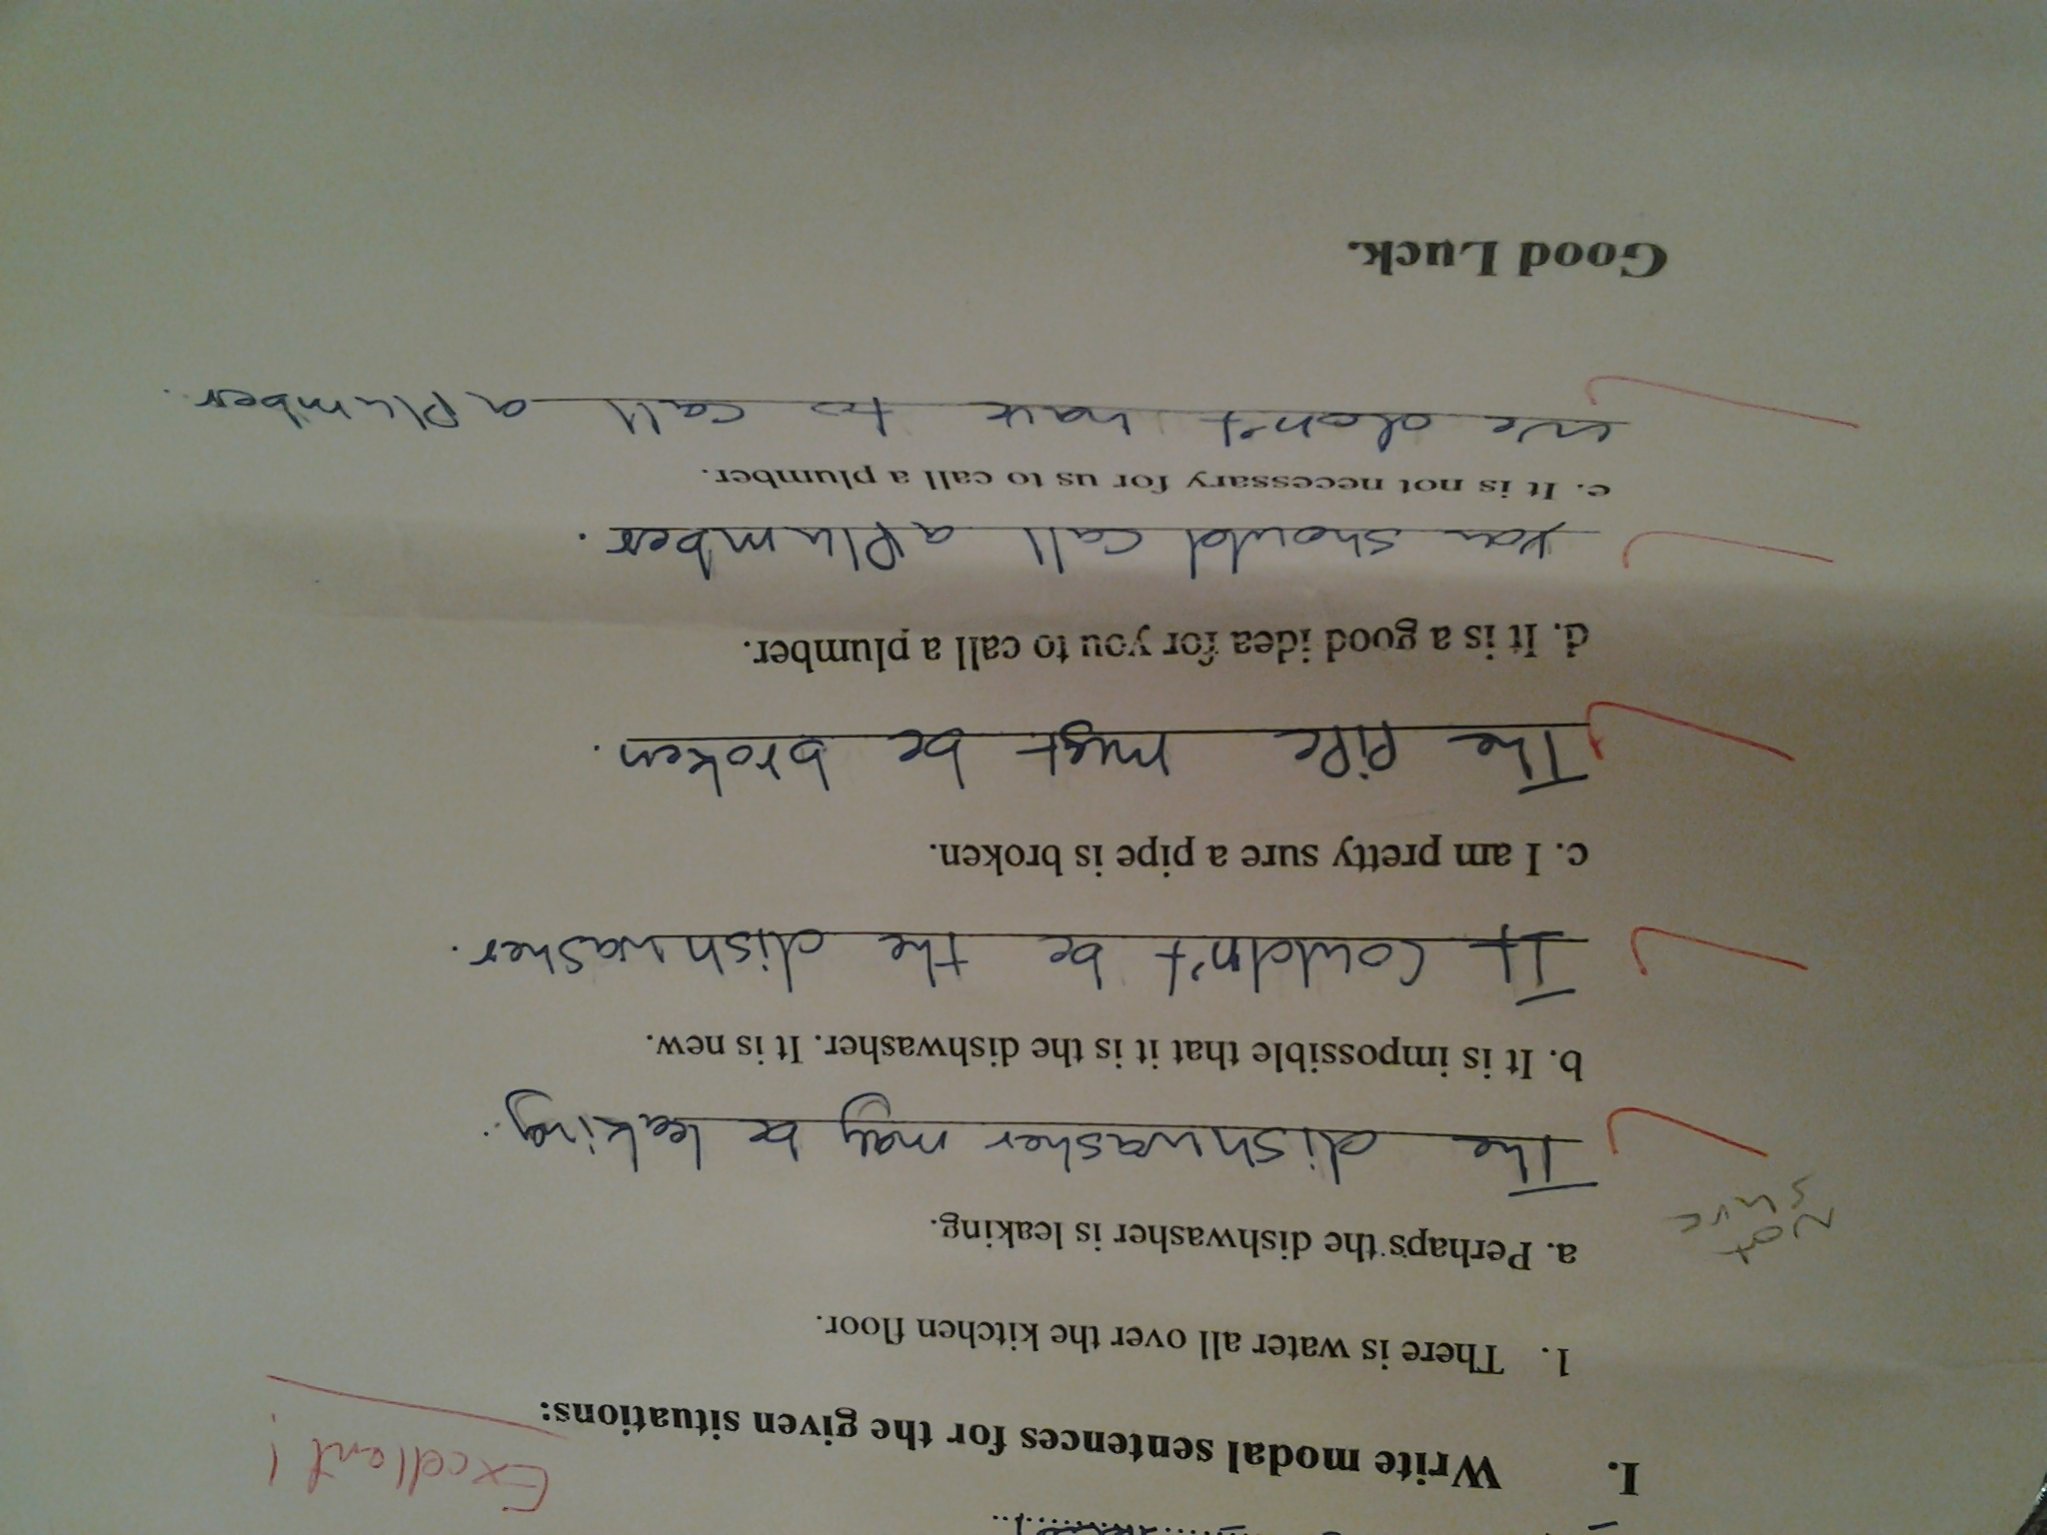 Excellent!
I. Write modal sentences for the given situations:
1. There is water all over the kitchen floor.
Not
sure
a. Perhaps the dishwasher is leaking.
The dishwasher may be leaking.
b. It is impossible that it is the dishwasher. It is new.
It couldn't be the dishwasher.
c. I am pretty sure a pipe is broken.
The pipe must be broken.
d. It is a good idea for you to call a plumber.
You should call a plumber.
e. It is not necessary for us to call a plumber.
we don't have to call a plumber.
Good Luck.